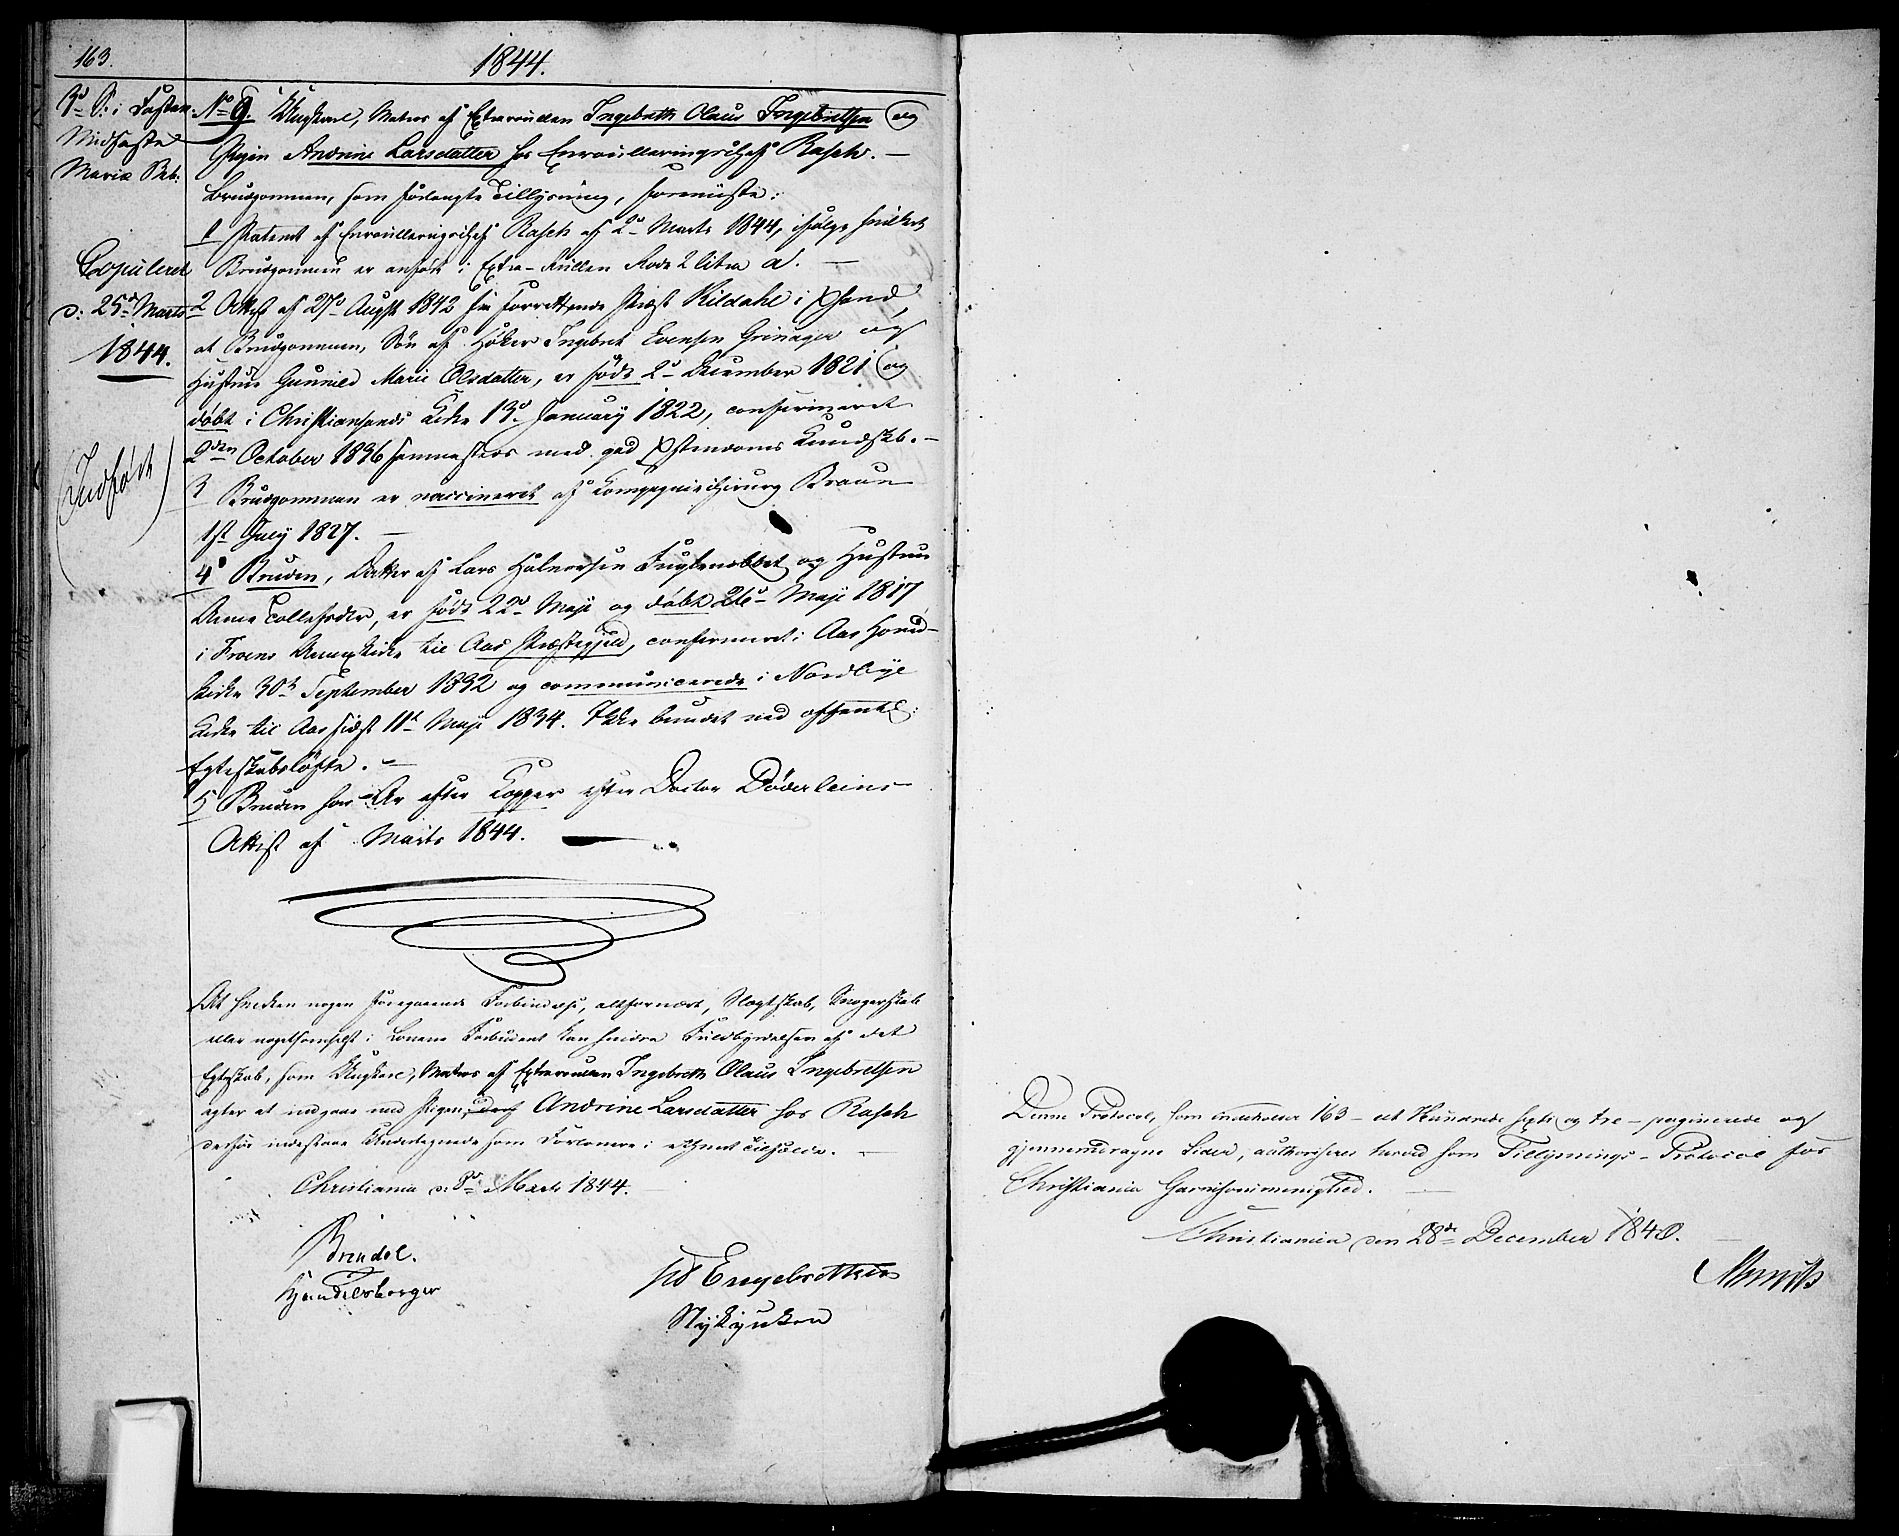 163.
1844.
3die S. i Fasten
Midfaste
Mariæ Beb:
Copuleret
d: 25de Marts
1844.
(Indført)
No 9. Ungkarl, Matros af Extraroullen Ingebreth Olaus Ingebretsen og
Pigen Andrine Larsdatter hos Enroulleringschef Rasch. —
Brudgommen, som forlangte Tillysning, foreviiste:
1 Patent af Enroulleringschef Rasch af 2den Marts 1844, ifølge hvilket
Brudgommen er anført i Extra-Rullen Rode 2 litra a. —
2 Attest af 27de Augst 1842 fra Forrettende Præst Kildahl i Xsand,
at Brudgommen, Søn af Høker Ingebret Evensen Grinager og
Hustrue Gunnild Marie Olsdatter, er født 2den December 1821 og
døbt i Christiansands Kirke 13de January 1822, confirmeret
2den October 1836 sammesteds med god Xstendoms Kundskab. —
3 Brudgommen er vaccineret af Compagniechirurg Braun
1ste July 1827. —
4 Bruden, Datter af Lars Halvorsen Fuglenebbet og Hustrue
Anne Tollefsdr, er født 22de Maji og døbt 26de Maji 1817
i Froens Annexkirke til Aas Præstegjeld, confirmeret i Aas Hoved-
kirke 30te September 1832 og communicerede i Nordbye
Kirke til Aas sidst 11te Maji 1834. Ikke bundet ved offentl:
Egteskabsløfte. —
5 Bruden har Ar efter Kopper efter Doctor Döderleins
Attest af Marts 1844.
At hverken nogen foregaaende Forbindelse, altfornært Slægtskab, Svogerskab
eller nogetsomhelst i Lovene Forbudent kan hindre Fuldbyrdelsen af det
Egteskab, som Ungkarl, Matros af Extraroullen Ingebreth Olaus Ingebretsen
agter at indgaae med Pigen Andrine Larsdatter hos Rasch
derfor indestaae Undertegnede som Forlovere i ethvert Tilfælde. —
Christiania d: 8de Marts 1844.
Brendel.
Handelsborger
Engebrethsen
Denne Protocol, som indeholder 163 – et Hundrede sexti og tre – paginerede og
gjennemdragne Sider, authoriseres herved som Tillysnings-Protocol for
Christiania Garnisonsmenighed. —
Christiania den 28de December 1840.